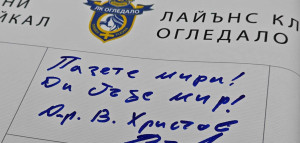 НИ
ЙКАЛ
ЛК ОГЛЕДАЛО
ЛАЙЪНС КЛ
ОГЛЕДАЛО
Пазете мири!
Да бъде мир!
Д-р. В. Христов